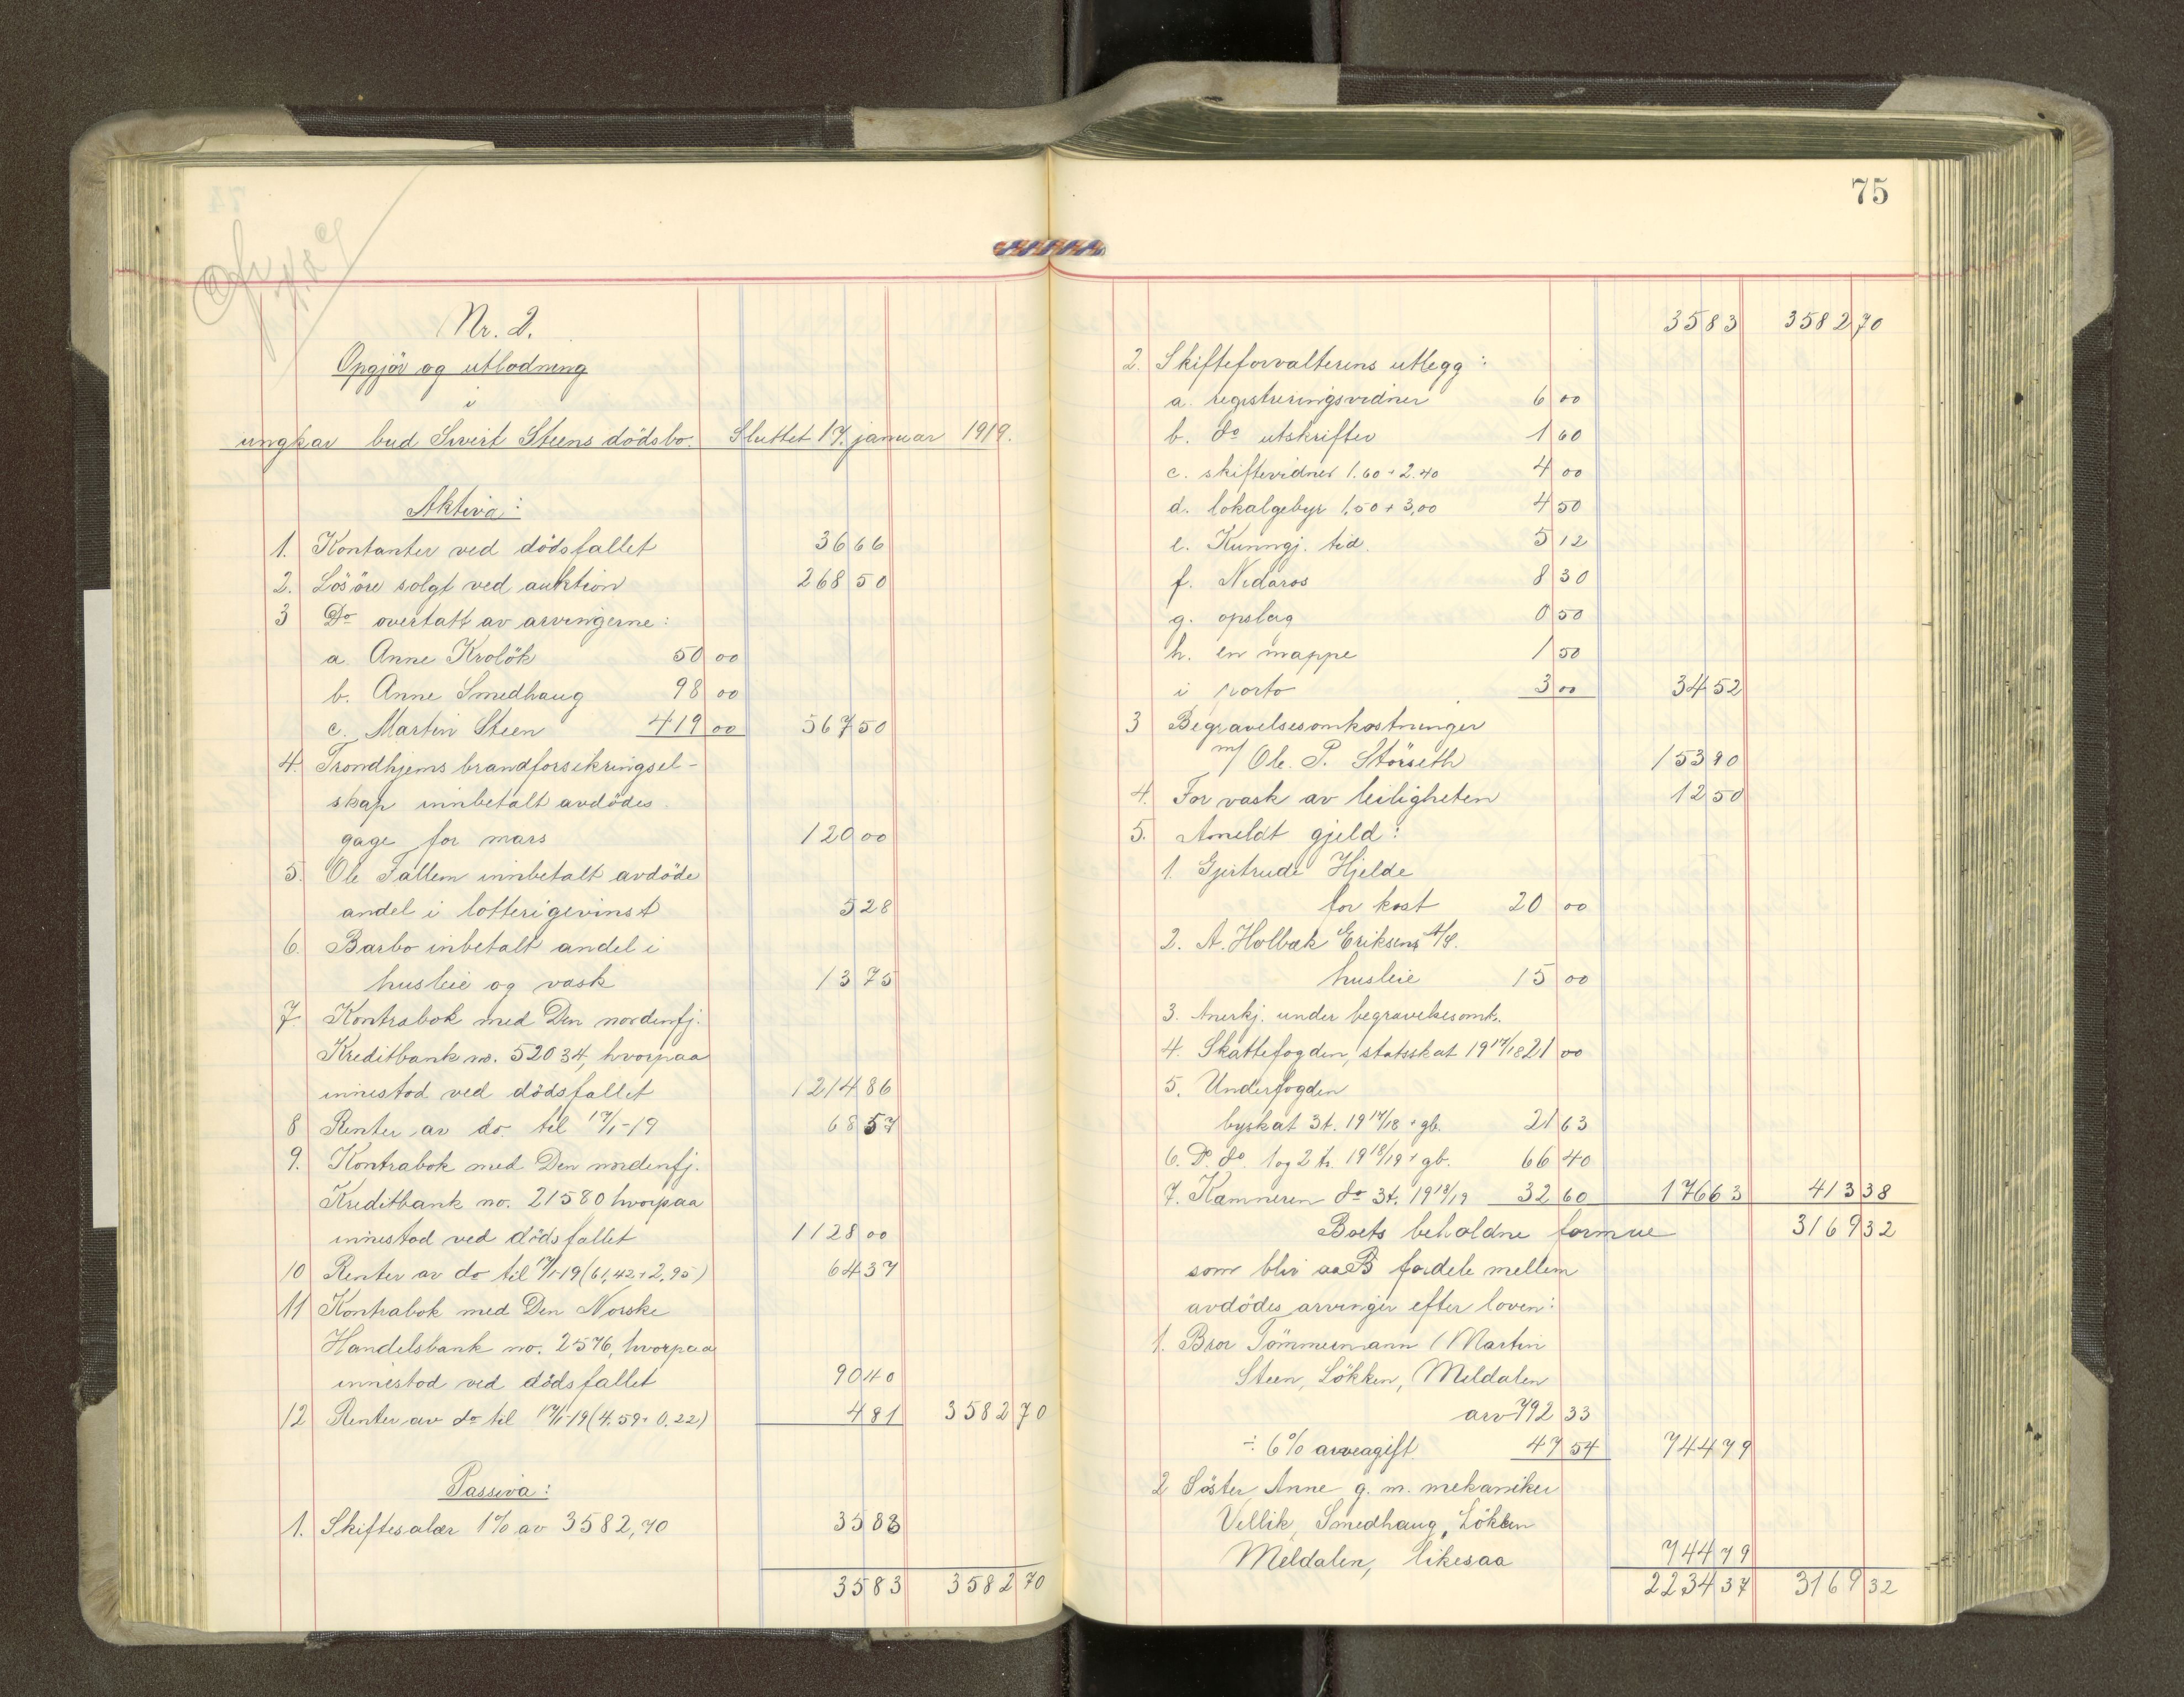 Nr. 2.
Opgjör og utlodning
i
ungkar bud Sivert Steens dödsbo. Sluttet 17. januar 1919.
Aktiva:
1. Kontanter ved dödsfallet 36 66
2. Lösöre solgt ved auktion 268 50
3 Do overtatt av arvingerne:
a. Anne Krolök 50 00
b. Anne Smedhaug 98 00
c. Martin Steen 419 00 567 50
4. Trondhjems brandforsikringsel-
skap innbetalt avdödes
gage for mars 120 00
5. Ole Fallem innbetalt avdöde
andel i lotterigevinst 5 28
6. Barbo inbetalt andel i
husleie og vask 13 75
7 Kontrabok med Den nordenfj.
Kreditbank no. 52034, hvorpaa
innestod ved dödsfallet 1214 86
8 Renter av do. til 17/1-19 68 57
9. Kontrabok med Den nordenfj.
Kreditbank no. 21580 hvorpaa
innestod ved dödsfallet 1128 00
10 Renter av do til 17/1-19 (61,42 + 2,95) 64 37
11 Kontrabok med Den Norske
Handelsbank no. 2576, hvorpaa
innestod ved dödsfallet 90 40
12 Renter av do til 17/1-19 (4.59 + 0.22) 4 81 3582 70
Passiva:
1. Skiftesalær 1% av 3582,70 35 83
35 83 3582 70
75
35 83 3582 70
2. Skifteforvalterens utlegg:
a. registreringsvidner 6 00
b. do utskrifter 1 60
c. skiftevidner 1.60 + 2.40 4 00
d. lokalgebyr 1,50 + 3,00 4 50
e. Kunngj. tid. 5 12
f. Nidaros 8 30
g. opslag 0 50
h. en mappe 1 50
i porto 3 00 34 52
3 Begravelsesomkostninger
m/ Ole. P. Störseth 153 90
4. For vask av leiligheten 12 50
5. Anmeldt gjeld:
1. Gjertrude Hjelde
for kost 20 00
2. A. Holbæk Eriksens A/S.
husleie 15 00
3. Anerkj. under begravelsesomk.
4. Skattefogden, statsskat 1917/18 21 00
5. Underfogden
byskat 3t. 1917/18 + gb. 21 63
6. Do do 1 og 2 t. 1918/19 + gb. 66 40
7. Kamneren do 3t. 1918/19 32 60 176 63 413 38
Boets beholdne formue 3169 32
som blir aa fordele mellem
avdödes arvinger efter loven:
1. Bror Tömmermann Martin
Steen, Lökken, Meldalen
arv 792 33
÷ 6% arveavgift 47 54 744 79
2 Söster Anne g. m. mekaniker
Vellik, Smedhaug, Lökken
Meldalen, likesaa 744 79
2234 37 3169 32